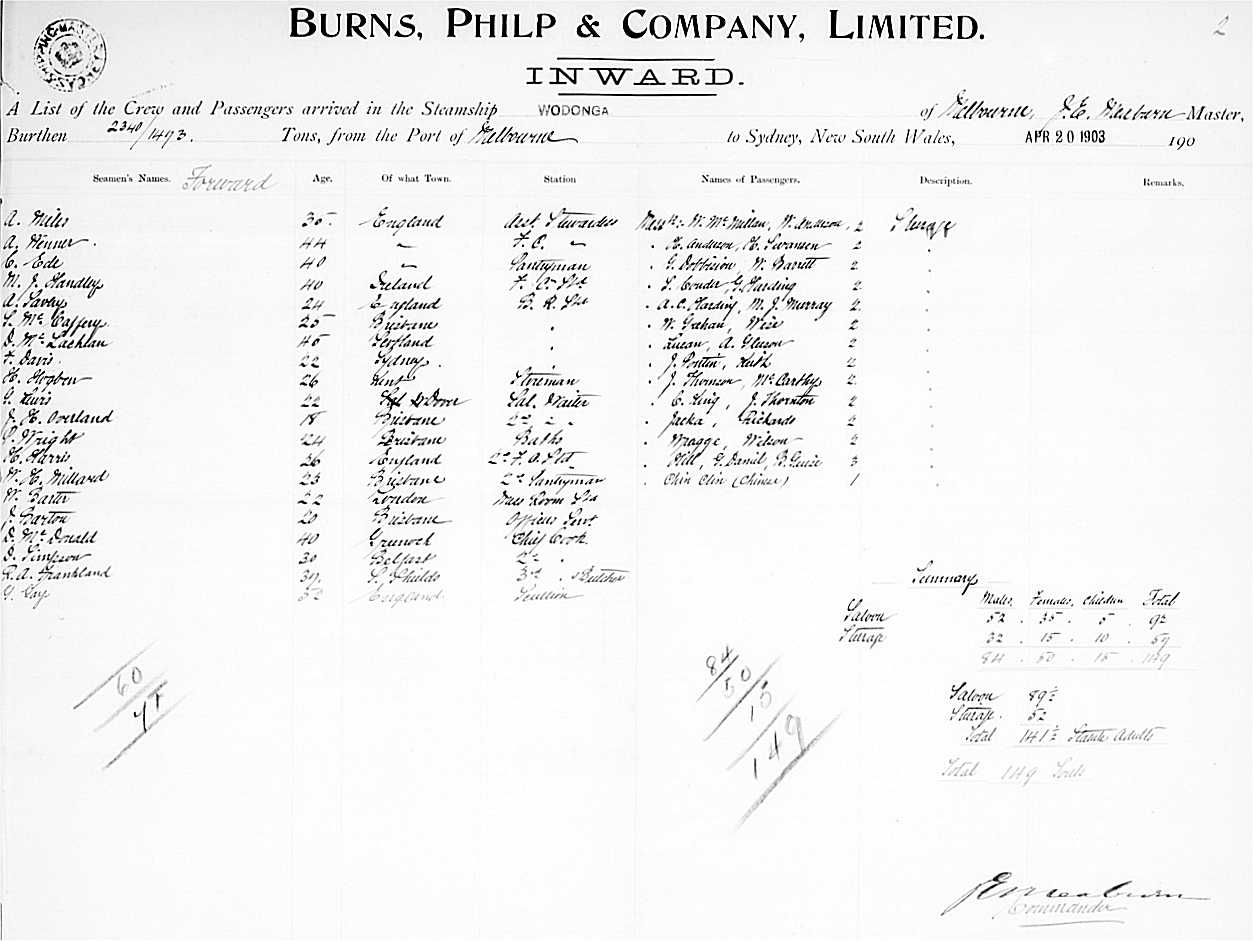 2
BURNS, PHILP & COMPANY, LIMITED.
INWARD.
A List of the Crew and Passengers arrived in the Steamship WODONGA of Melbourne, J. E. Meaburn Master,
Burthen 2340/1493. Tons, from the Port of Melbourne to Sydney, New South Wales, APR 20 1903 190
Seamen's Names. Forward Age. Of what Town. Station Names of Passengers. Description. Remarks.
A. Miles 35 England Asst. Stewardess W. McMillan, W. Anderson, 2 Steerage
A. Henner. 44 " F. C. " H. Anderson, H. Swansen 2 "
C. Ede 40 " Pantryman W. Barrett 2 "
M. J. Handley 40 Ireland F. C. G. Harding 2 "
A. Savey 24 England B. R. A. C. Harding, M. J. Murray 2 "
Mc Caffery 25 Brisbane " W. Graham, Wise 2 "
D. McLachlan 45 Scotland " A. Gleeson 2 "
F. Davis. 22 Sydney. J. Pontin, Keith 2 "
H. Hogben 26 Kent Storeman J. Thomson, McCarthy 2 "
G. Lewis 22 Dover Sal. Waiter C. King, J. Thornton 2 "
J. H. Overland 18 Brisbane 2nd " " Jacka, Richards 2 "
P. Wright 24 Brisbane Baths Wragge, Wilson 2 "
H. Harris 36 England 2nd F. C. Hill, G. Daniel, 3 "
W. H. Millard 23 Brisbane 2nd Pantryman Chin Chin (Chinese) 1 "
W. Barter 22 London Mess Room
J. Barton 20 Brisbane Officers Servt
D. McDonald 40 Greenock Chief Cook
D. Simpson 30 Belfast 2nd "
R. A. Frankland 39. S. Shields 3rd " & Butcher
G. Gay 52 England Scullion
Summary
Males, Females, Children Total
Saloon 52 . 35 . 5 . 92
Steerage 32 . 15 . 10 . 57
84 . 50 . 15 . 149
60
84
50
15
149
Saloon 89½
Steerage. 52
Total 141½ Statute Adults
Total 149 Souls
J E Meaburn
Commander